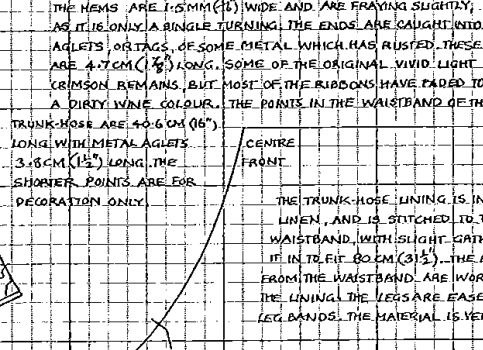 THE HEMS ARE 1·5MM (1/16") WIDE AND ARE FRAYING SLIGHTLY,
AS IT IS ONLY A SINGLE TURNING. THE ENDS ARE CAUGHT INTO
AGLETS, OR TAGS, OF SOME METAL WHICH HAS RUSTED. THESE
ARE 4·7CM (1 7/8") LONG. SOME OF THE ORIGINAL VIVID LIGHT
CRIMSON REMAINS BUT MOST OF THE RIBBONS HAVE FADED TO
A DIRTY WINE COLOUR. THE POINTS IN THE WAISTBAND OF TH
TRUNK-HOSE ARE 40·6CM (16")
LONG WITH METAL AGLETS
3·8CM (1½") LONG. THE
SHORTER POINTS ARE FOR
DECORATION ONLY.
CENTRE
FRONT
THE TRUNK-HOSE LINING IS IN
LINEN, AND IS STITCHED TO T
WAISTBAND, WITH SLIGHT GATH
IT IN TO FIT 80CM (31½"). THE
FROM THE WAISTBAND ARE WOR
THE LINING. THE LEGS ARE EASE
LEG BANDS. THE MATERIAL IS VE